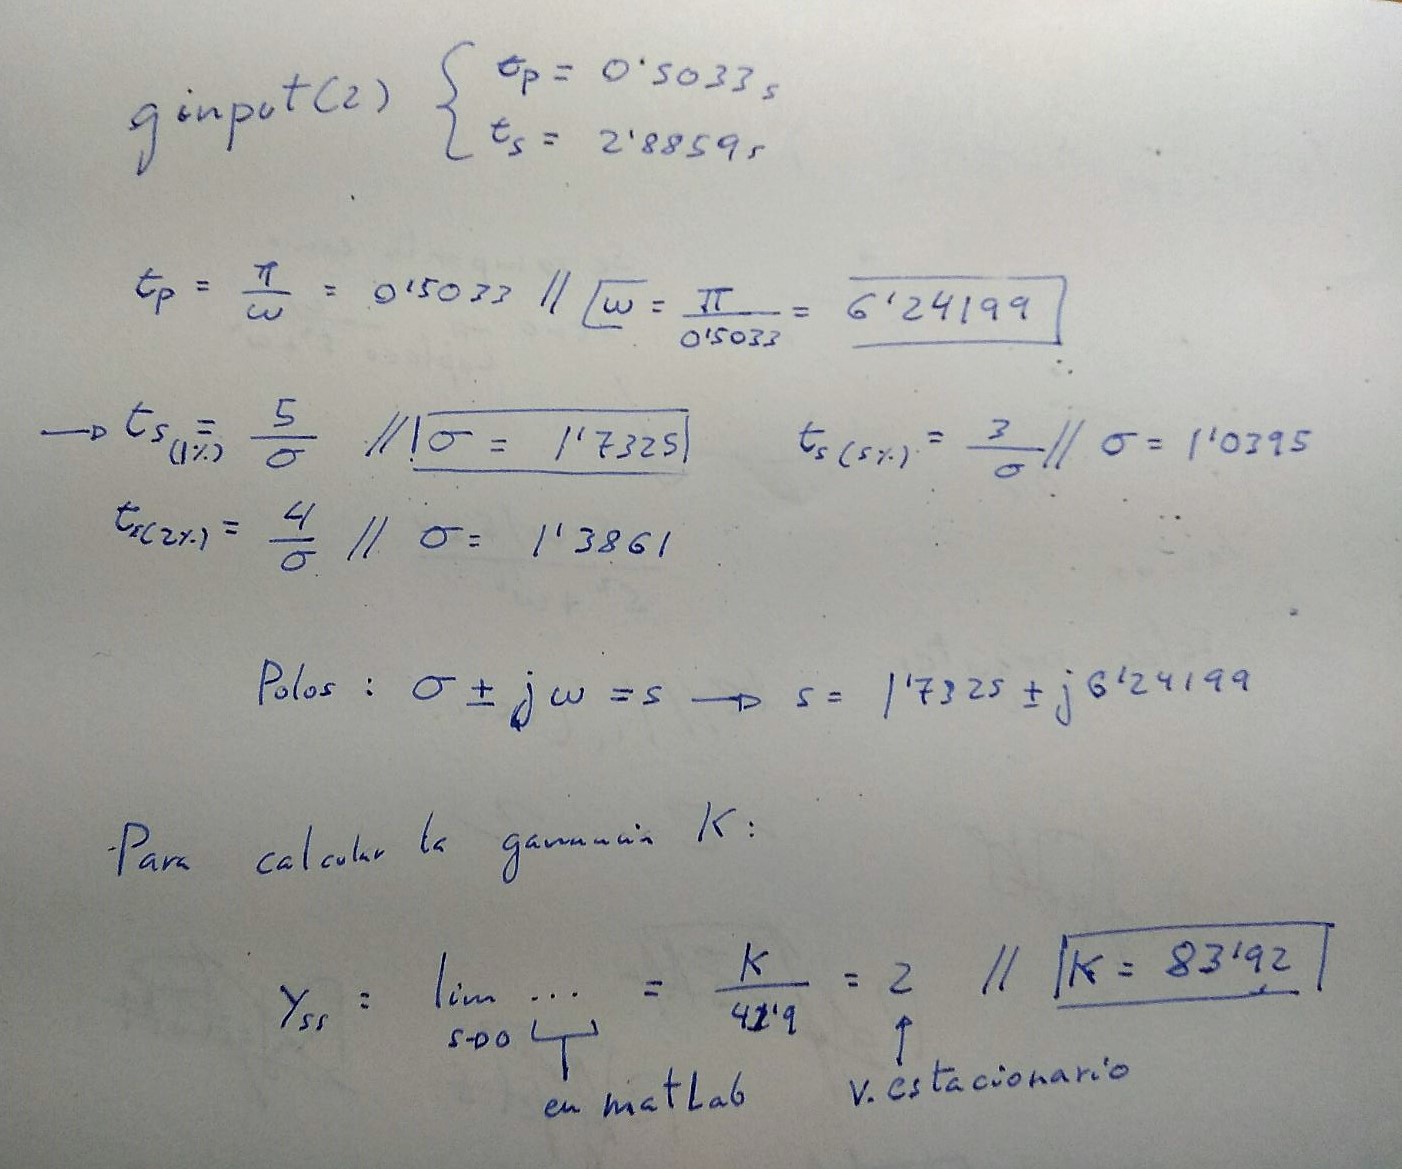 ginput(2) { tp = 0'5033 s
ts = 2'8859 s
tp = π/ω = 0'5033 // ω = π/0'5033 = 6'24199
→ ts(1%) = 5/σ // σ = 1'7325 ts(5%) = 3/σ // σ = 1'0395
ts(2%) = 4/σ // σ = 1'3861
Polos : σ ± jω = s → s = 1'7325 ± j6'24199
Para calcular la ganancia K:
Yss = lim ... = K/41'9 = 2 // K = 83'92
s→0
en matLab v. estacionario